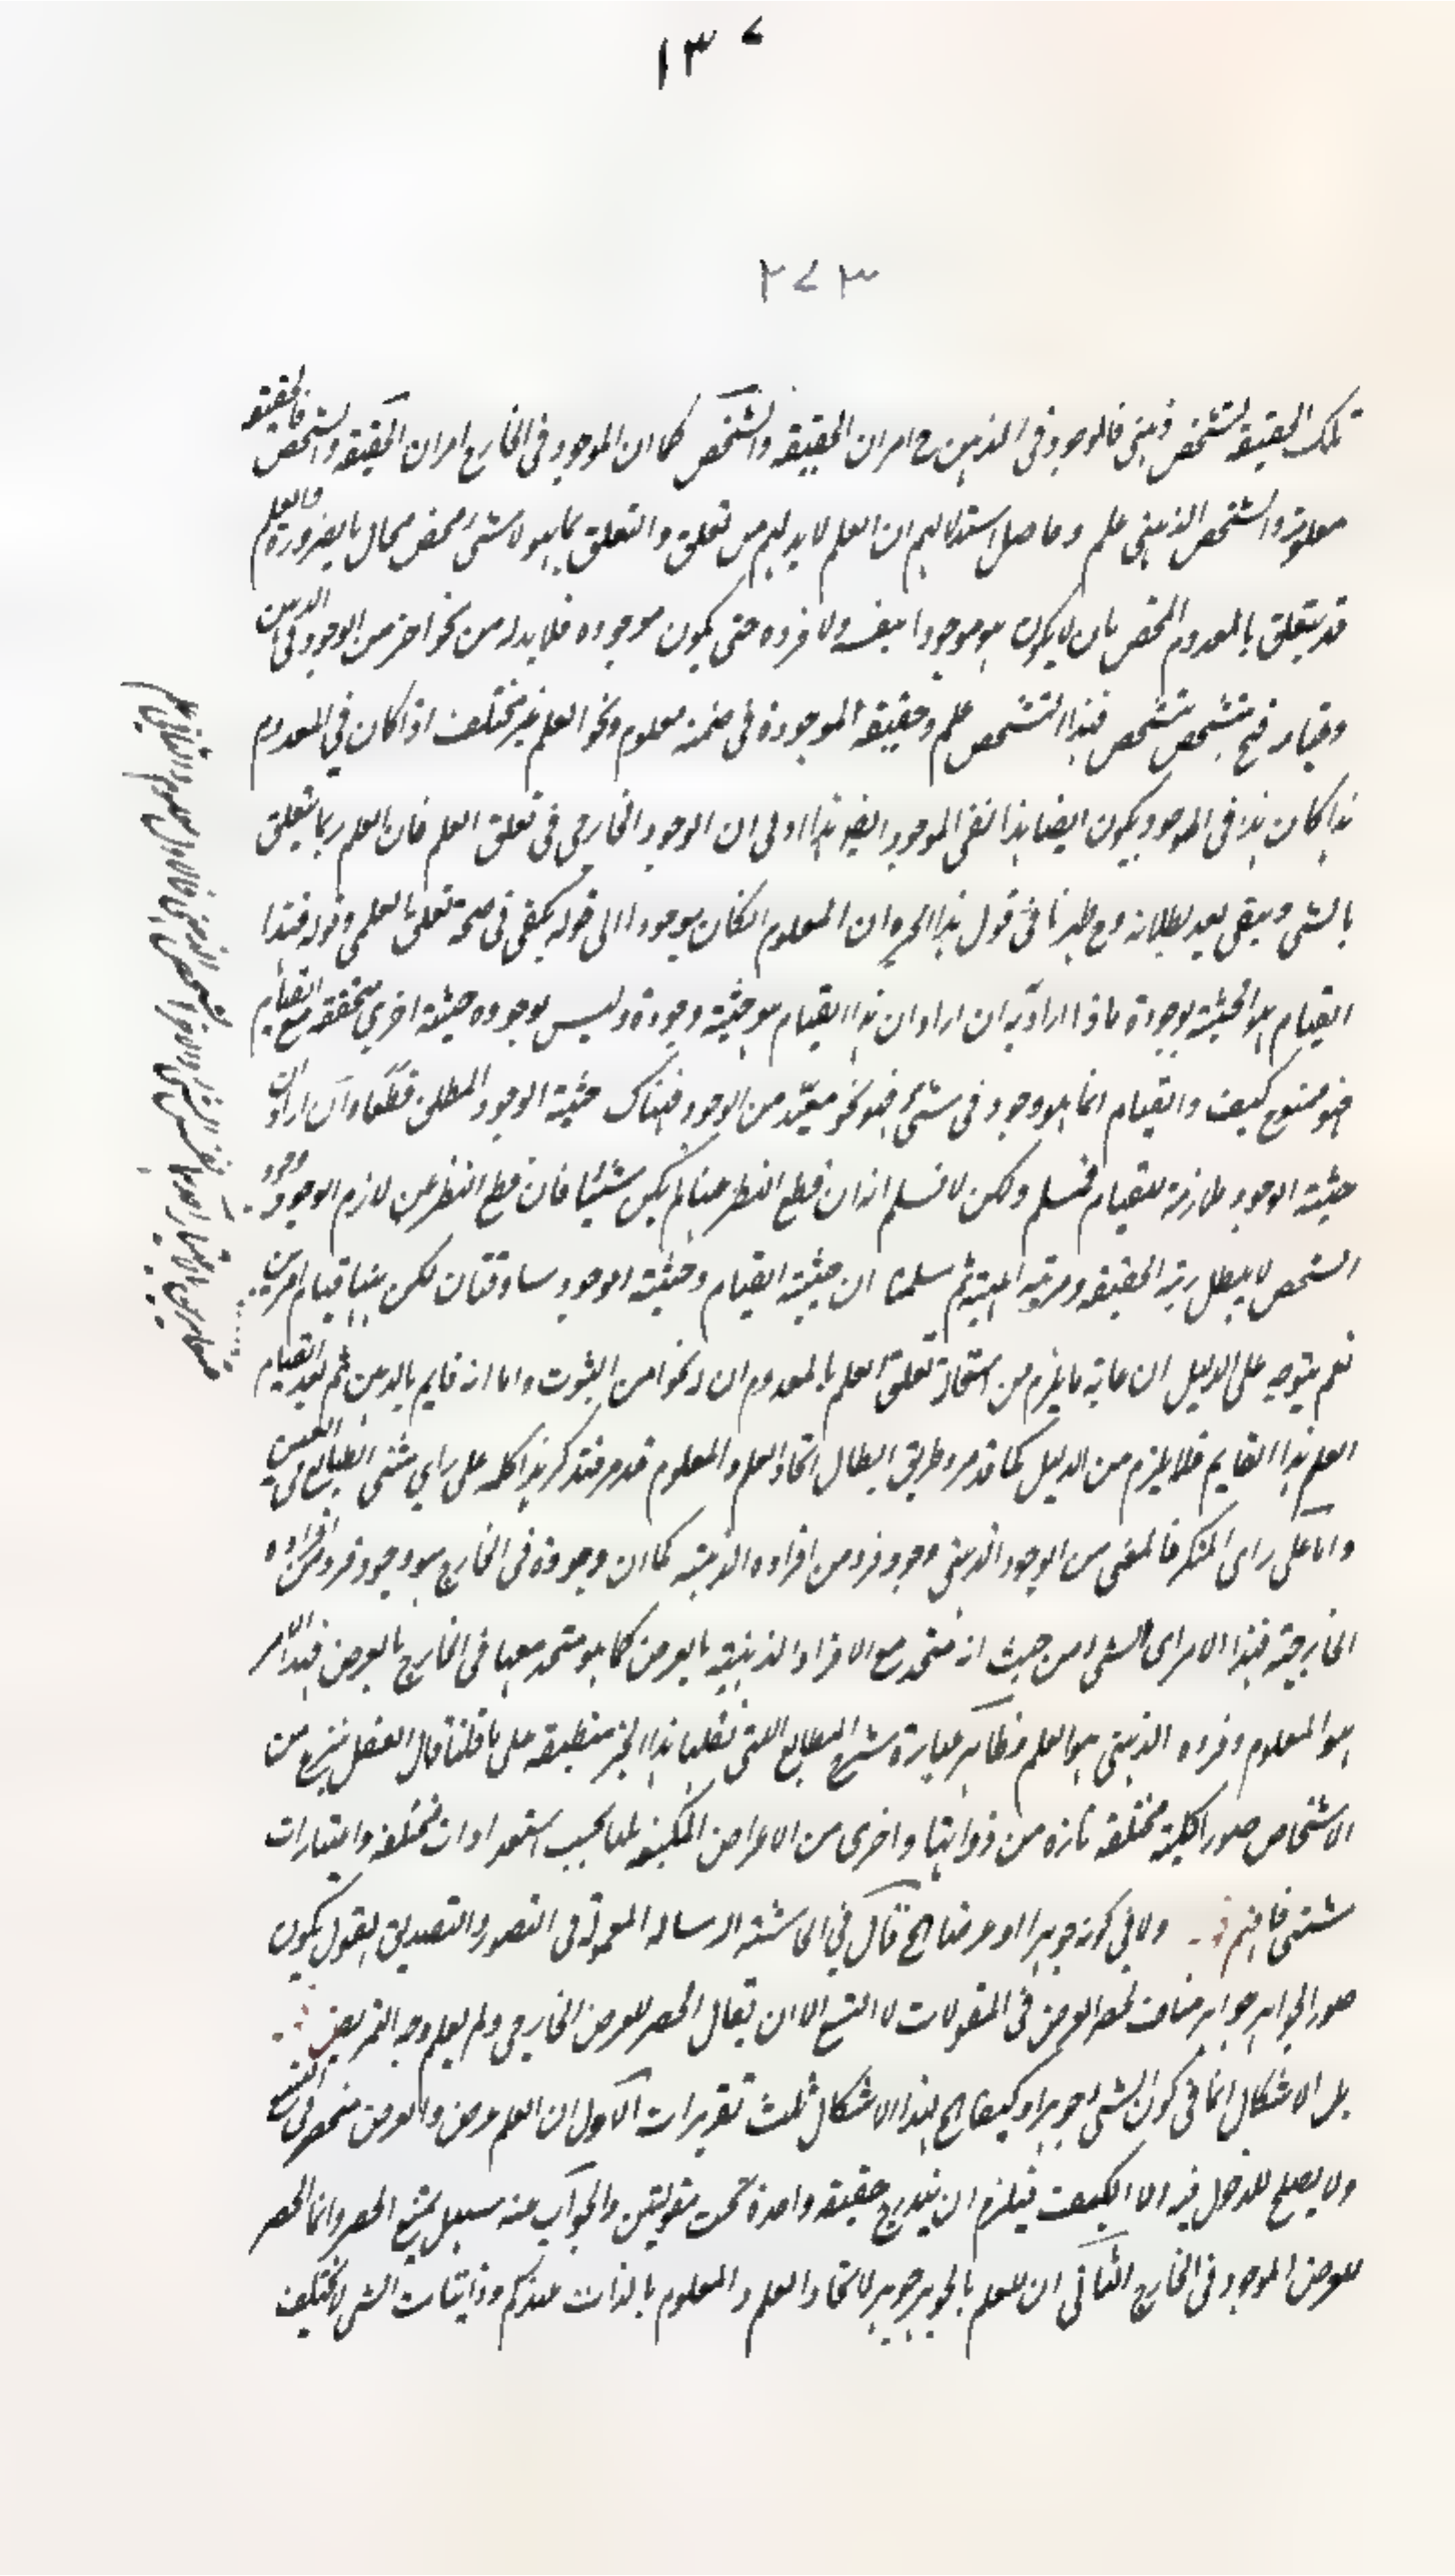 ١٣٧
٢٧٣
تلك الحقيقة لشخص ذهني فالموجود في الذهن ح امران الحقيقة والتشخص كما ان الموجود في الخارج امران الحقيقة والتشخص فالحقيقة
معلومة والتشخص الذهني علم وحاصل استدلالهم ان العلم لا بد لهم من تعلق والتعلق بما هو لا شئ محض محال بالضرورة والعلم
قد يتعلق بالمعدوم المحض بان لا يكون هو موجودا بنفسه ولا فرده حتى يكون موجوده فلا بد له من نحو اخر من الوجود في الذهن
وقيام فح تشخص فهذا التشخص علم وحقيقة الموجودة في ضمنه معلوم ونحو العلم غير مختلف اذا كان في المعدوم
هذا كان هذا في الموجود ويكون ايضا هذا نفي الموجود ايضو هذا اولى ان الوجود الخارجي في تعلق العلم فان العلم ربما يتعلق
بالشئ ويبقى بعد بطلانه وح ظهر ما في قول هذا الحبر ان المعلوم ان كان موجودا الى قوله يكفي في صحة تعلق العلم وقوله فهذا
القيام هو الحيثية لوجوده ماذا اراد به ان اراد ان هذا القيام هو حيثية وجوده وليس لوجوده حيثية اخرى متحققة مع القيام
فهو ممنوع كيف والقيام انما هو وجود في شئ فهو نحو معين من الوجود فهناك حيثية الوجود المطلق قطعا وان اراد ان
حيثية الوجود ملازمة للقيام فمسلم ولكن لا نسلم انه ان قطع النظر عنها لم يكن شيئا فان قطع النظر عن لازم الوجود
الشخص لا يبطل رتبة الحقيقة ومرتبة المهية ثم سلمنا ان حيثية القيام وحيثية الوجود مساوقتان لكن بينها قيام امرين
نعم يتوجه على الدليل ان غاية ما يلزم من استحالة تعلق العلم بالمعدوم ان له نحوا من الثبوت واما انه قايم بالذهن ثم بعد القيام
العلم هذا القايم فلا يلزم من الدليل كما قد مر وطريق ابطال اتحاد العلم والمعلوم قد مر فتذكر هذا كله على راي مثبتي الطبايع في العين
واما على راى المنكر فالمعنى من الوجود الذهني وجود فرد من افراده الذهنية كما ان وجوده في الخارج هو وجود فرد من افراده
الخارجية فهذا الامر اى الشئ من حيث انه متحد مع الافراد الذهنية بالعرض كما هو متحد معها في الخارج بالعرض فهذا الامر
هو المعلوم وفرده الذهني هو العلم فظاهر عبارة شرح المطالع التي نقلها هذا الحبر منطبقة على ما قلنا قال العقل ينتزع من
الاشخاص صورا كلية مختلفة تارة من ذواتها واخرى من الاعراض المكتنفة لها بحسب استعدادات مختلفة واعتبارات
شتى فافهم ولا في كونه جوهرا او عرضا الخ قال في الحاشية الرسالة المعمولة في التصور والتصديق القول بكون
صور الجواهر جواهر مناف لحصر العرض في المقولات لا التسع الا ان يقال الحصر للعرض الخارجي ولم يعلم وجه التمريض
بل الاشكال انما في كون الشئ جوهرا وكيفا الخ لهذا الاشكال ثلث تقريرات الاول ان العلم عرض والعرض منحصر في التسع
ولا يصلح للدخل فيه الا الكيف فيلزم ان يندرج حقيقة واحدة تحت مقولتين والجواب عنه سهل بمنع الحصر وانما الحصر
للعرض الموجود في الخارج الثاني ان العلم بالجوهر جوهر لاتحاد العلم والمعلوم بالذات عندكم وذاتيات الشئ لا تختلف